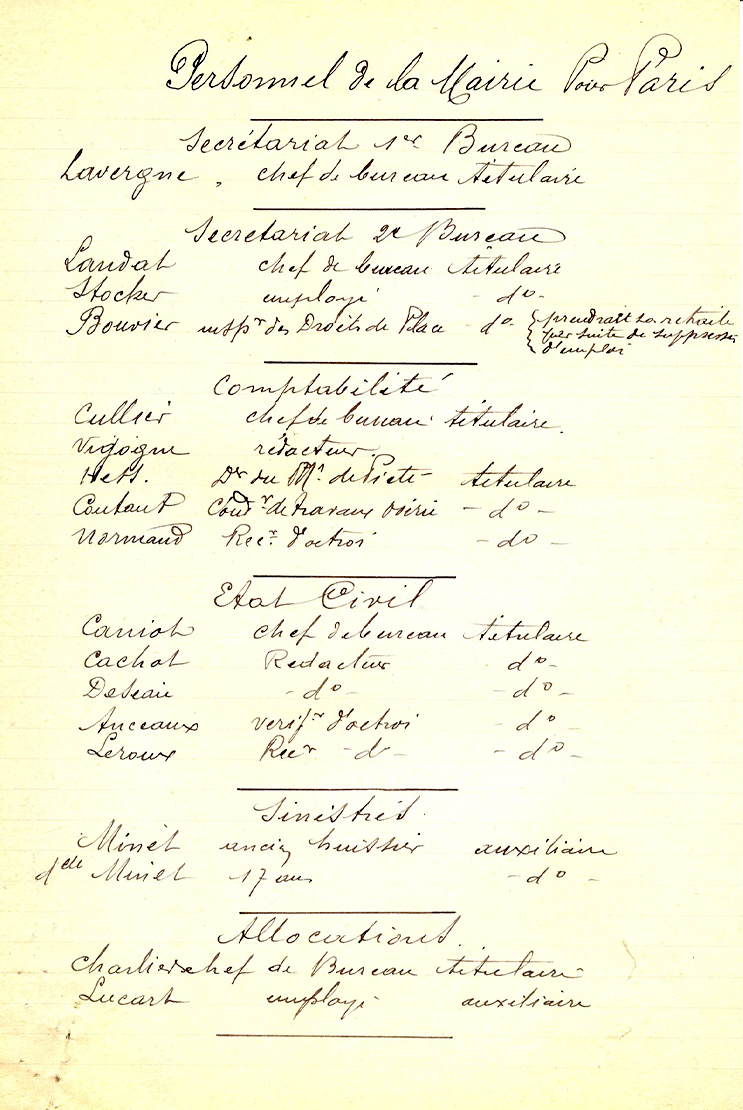 Personnel de la Mairie Pour Paris
Secrétariat 1er Bureau
Lavergne, chef de bureau titulaire
Secretariat 2e Bureau
Landat chef de bureau titulaire
Stocker employé - do -
Bouvier insp.r des Droits de Place - do - { prendrait sa retraite
par suite de suppression
d'emploi
Comptabilité
Cullier chef de bureau titulaire.
Vigogne rédacteur.
Hett. Dr du Mt de Piété titulaire
Coutant Condr de travaux voirie - do -
Normand Recr. d'octroi - do -
Etat Civil
Carriot chef de bureau titulaire
Cachot Redacteur - do -
- do - - do -
Anceaux verifr d'octroi - do -
Leroux Recr - do - - do -
Sinistrés.
Minet ancien huissier auxiliaire
delle Minet 17 ans - do -
Allocations.
Charlier chef de Bureau titulaire
Lucart employé auxiliaire